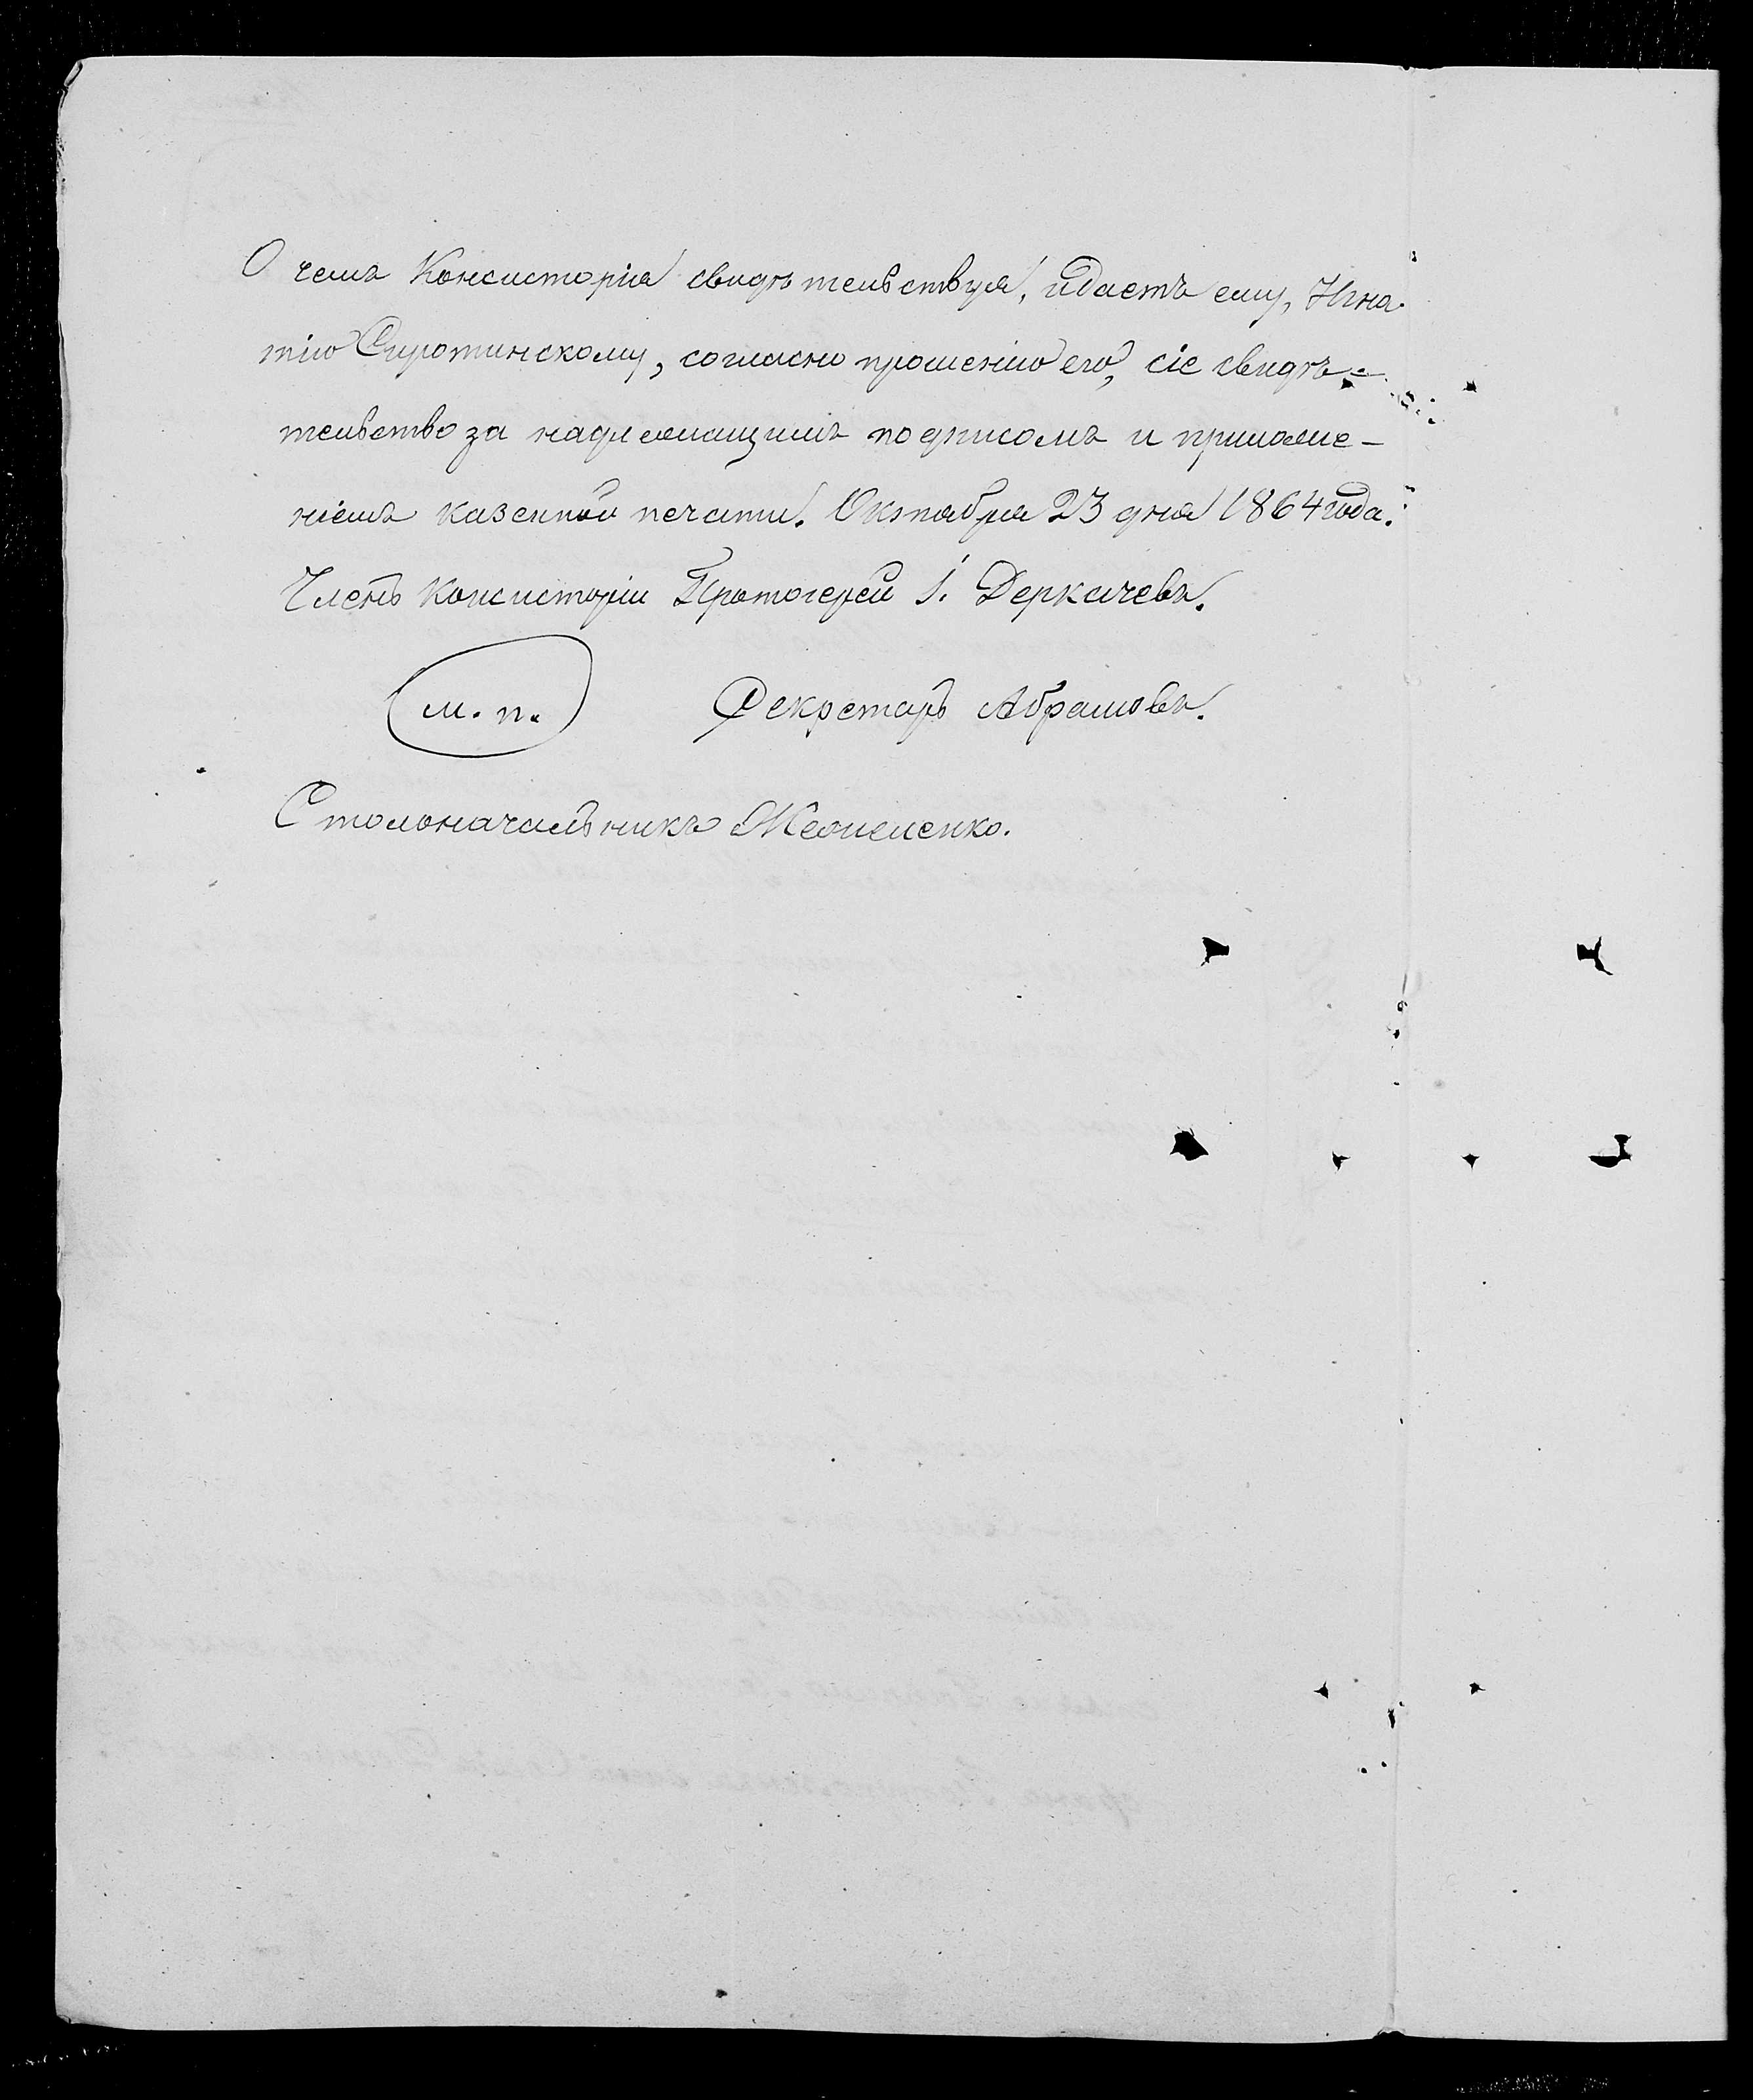 О чемъ Консисторія свидѣтельствуя, и даетъ ему, Игна-
тію Сиротинскому, согласно прошенію его, сіе свидѣ-
тельство за надлежащимъ подписомъ и приложе-
ніемъ казенной печати. Октября 23 дня 1864 года.
Членъ Консисторіи Протоіерей І. Деркачевъ.
м. п. Секретарь Абрамовъ.
Столоначальникъ